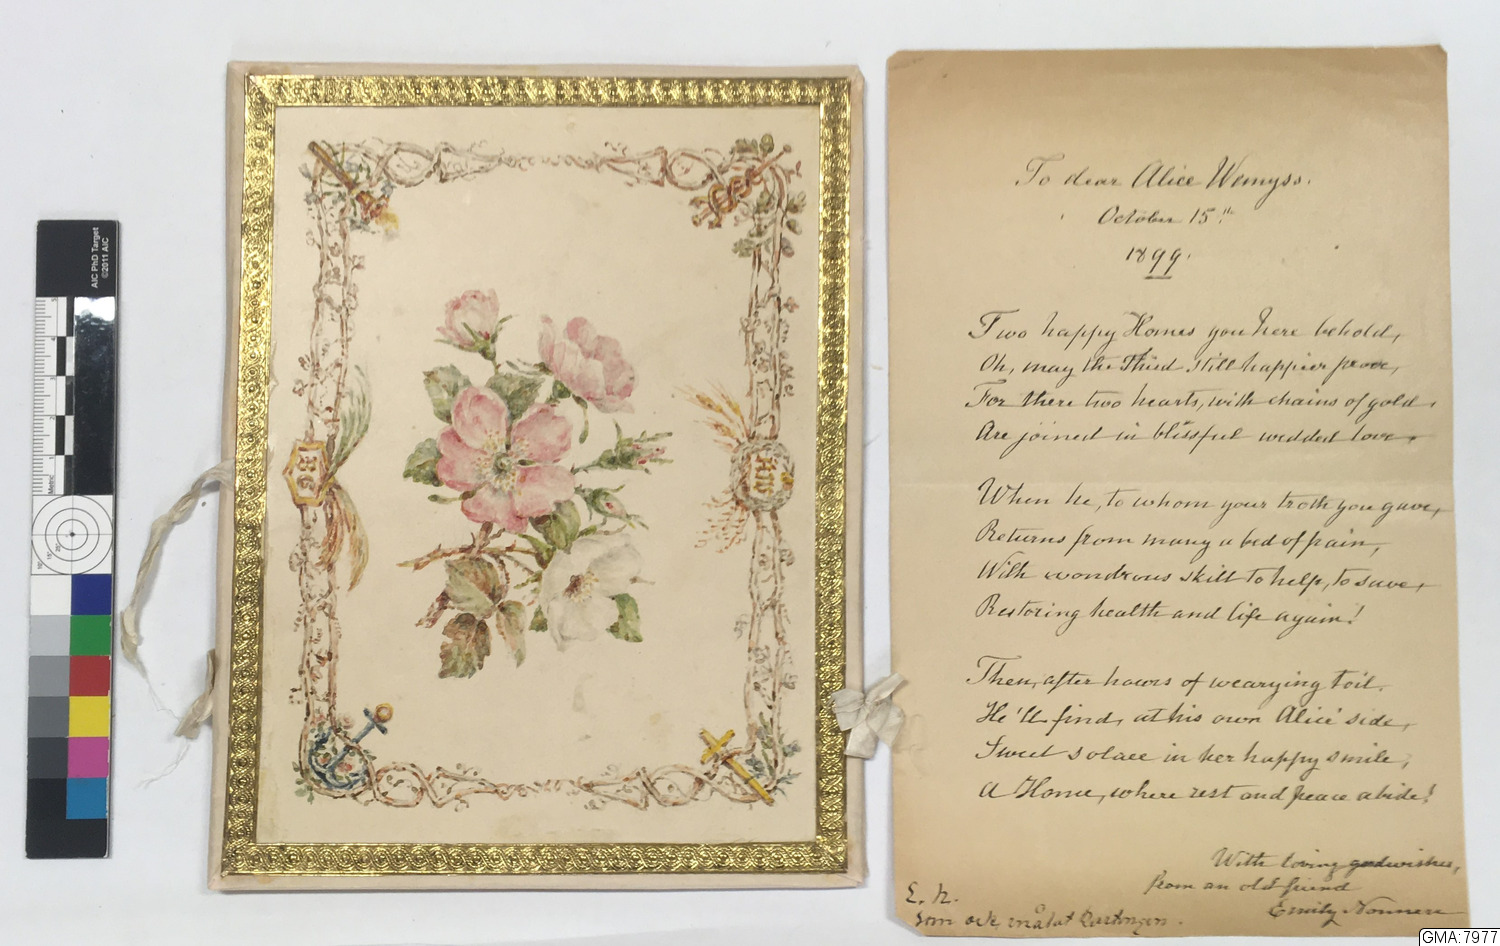 AIC PhD Target
©2011 AIC
Metric
186
AW
To dear Alice Wemyss.
October 15th
1899.
Two happy Homes you here behold,
Oh, may the Third still happier prove,
For there two hearts, with chains of gold,
Are joined in blissful wedded love.
When he, to whom your troth you gave,
Returns from many a bed of pain,
With wondrous skill to help, to save,
Restoring health and life again!
Then, after hours of wearying toil,
He'll find, at his own Alice' side,
Sweet solace in her happy smile,
A Home, where rest and peace abide!
With loving goodwishes,
from an old friend
Emily Nonnen
E. N.
som ock målat kartongen.
GMA:7977